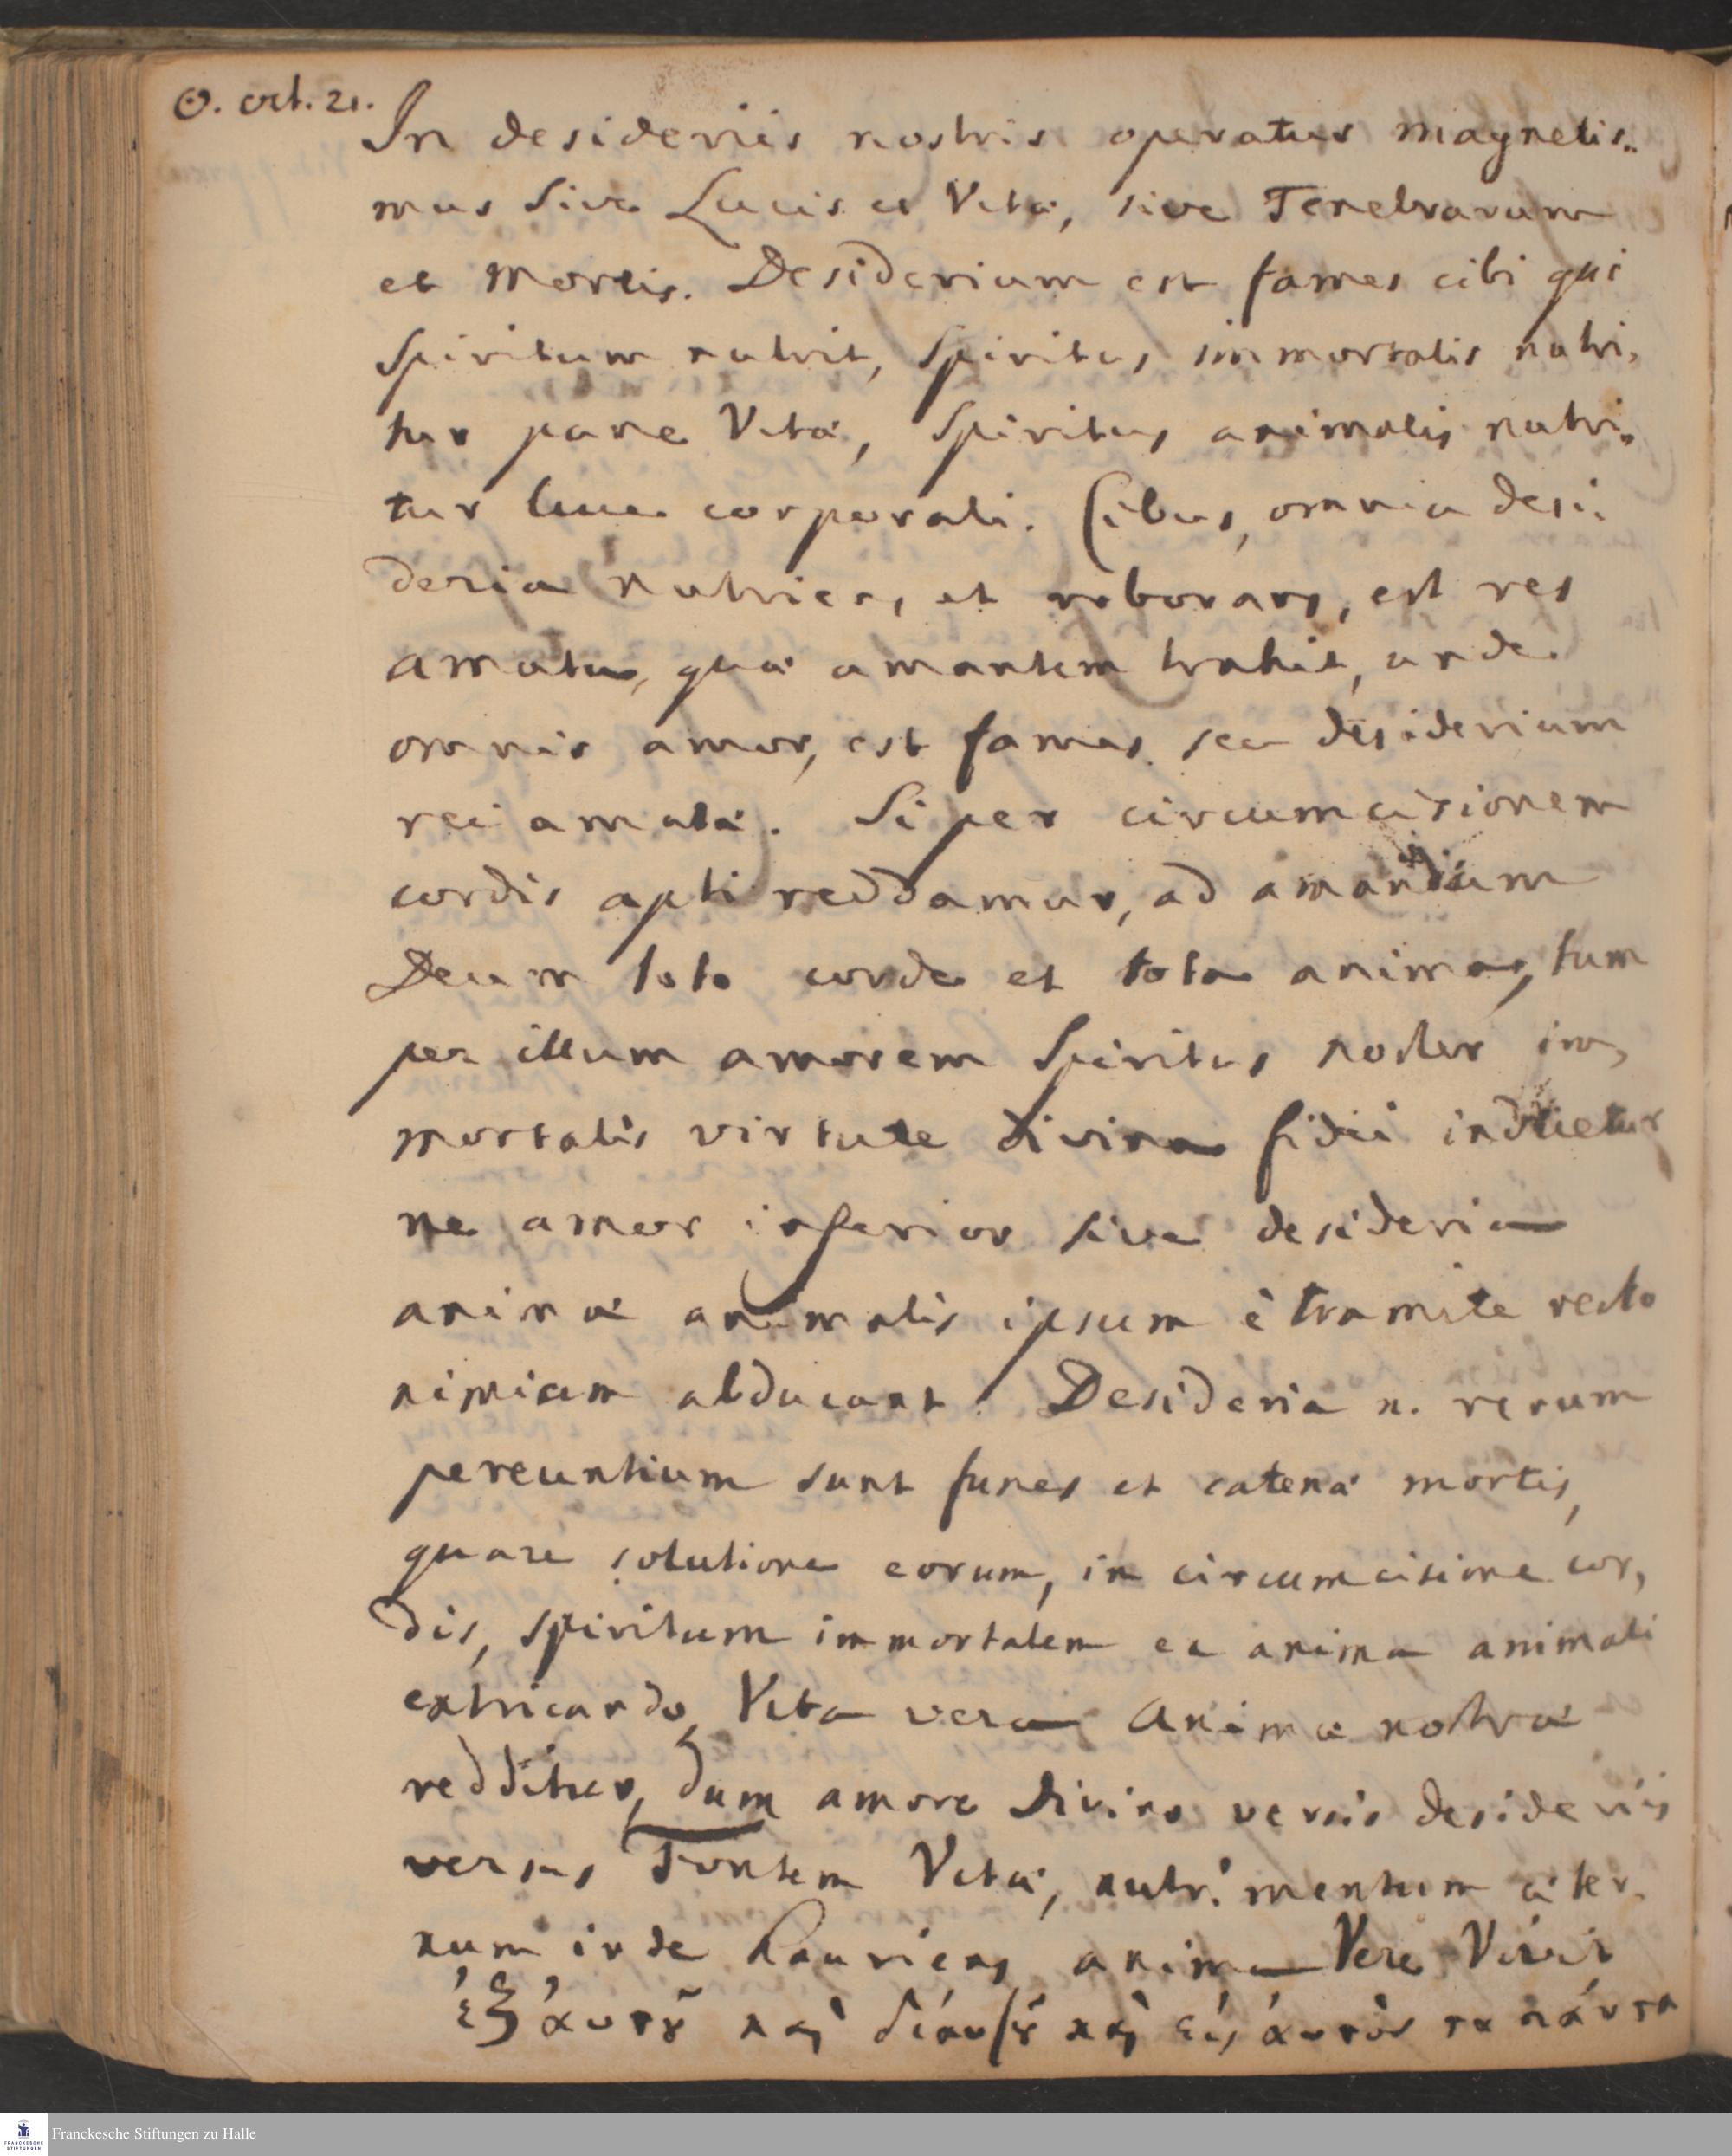 ☉. oct. 21.
In desideriis nostris operatur magnetis-
mus sive Lucis et Vitæ, sive Tenebrarum
et Mortis. Desiderium est fames cibi qui
Spiritum nutrit, Spiritus immortalis nutri-
tur pane Vitæ, Spiritus animalis nutri-
tur luce corporali. Cibus, omnia desi-
deria nutriens, et roborans, est res
amata, quæ amantem trahit, unde
omnis amor, est fames seu desiderium
rei amatæ. Si per circumcisionem
cordis apti reddamur, ad amandum
Deum toto corde et tota anima, tum
per illum amorem Spiritus noster im-
mortalis virtute divina fidei induetur
ne amor inferior sive desideria
animæ animalis ipsum è tramite recto
nimium abducant. Desideria n. rerum
pereuntium sunt funes et catenæ mortis,
quare solutione eorum, in circumcisione cor-
dis, spiritum immortalem ex anima animali
extricando, Vita vera Animæ nostræ
redditur, dum amore divino veris desideriis
versus Fontem Vitæ, nutrimentum æter-
num inde hauriens anima Vere Vivit
ἐξ ἀυτȣ͂ καὶ δἰ ἀυτȣ͂ καὶ εἰς ἀυτὸν τα πάντα
Franckesche Stiftungen zu Halle